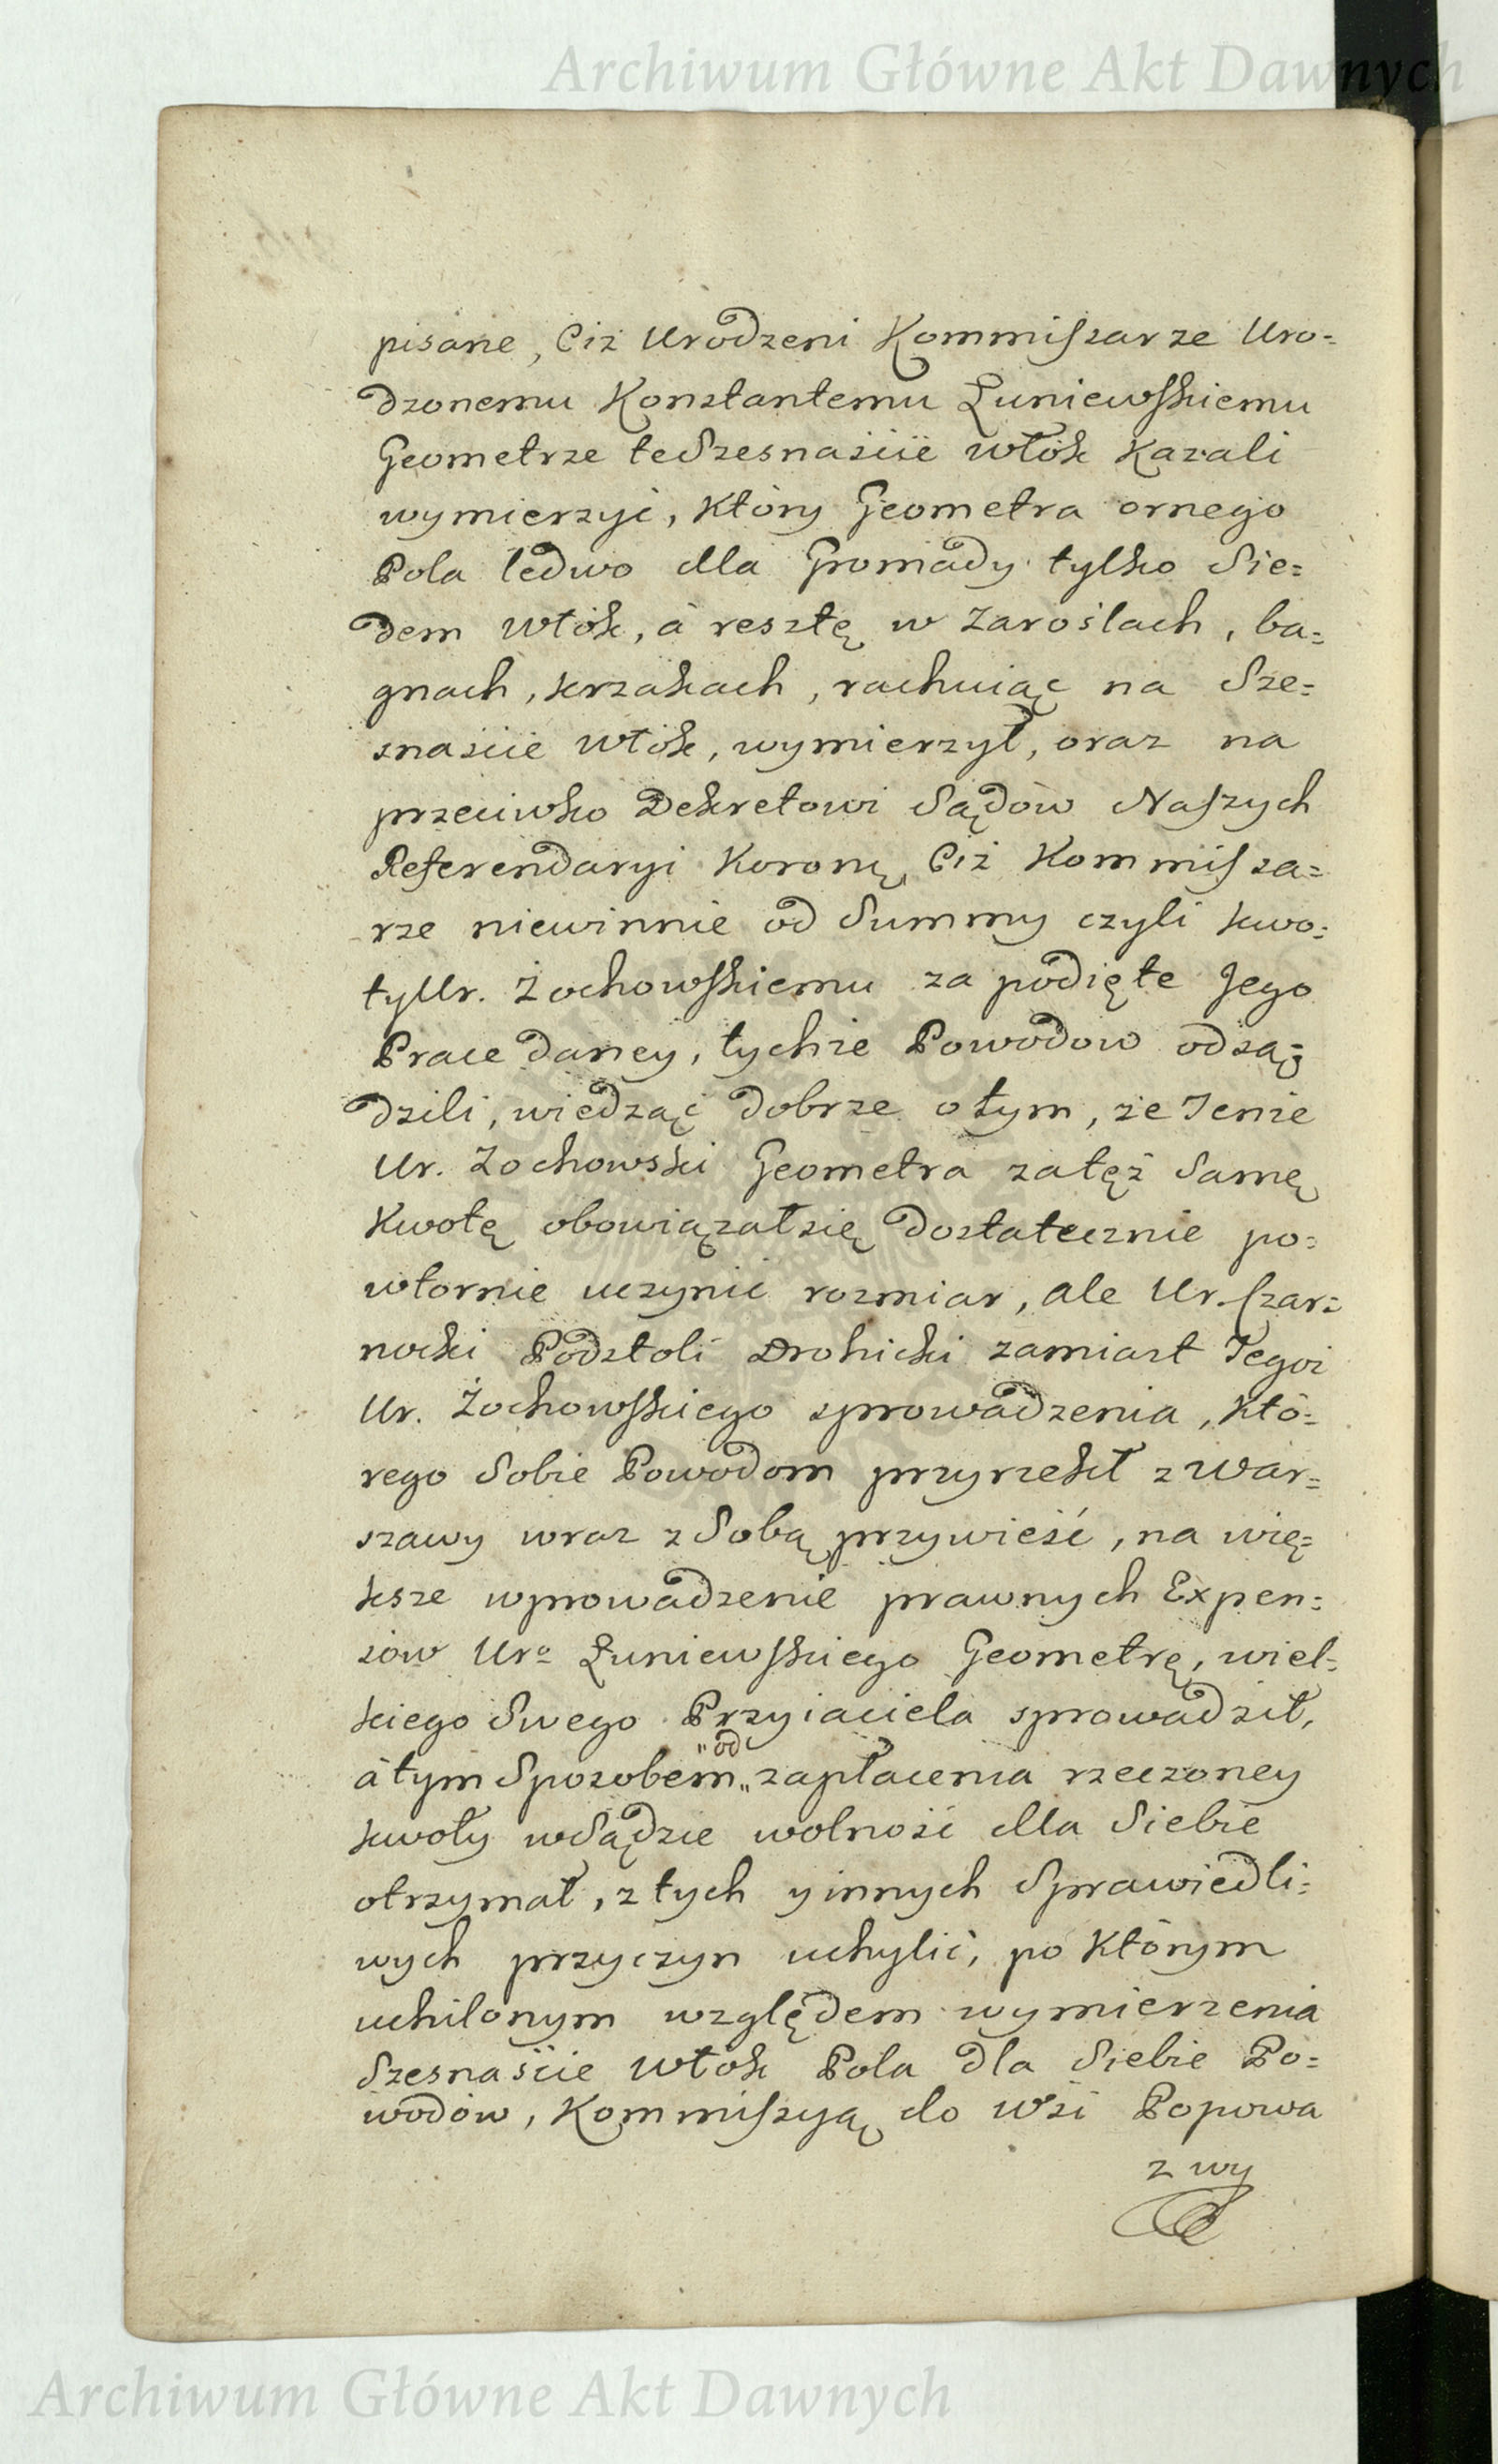 Archiwum Główne Akt Dawnych
pisane, Ciż Urodzeni Kommiſsarze Uro=
dzonemu Konstantemu Łuniewſkiemu
Geometrze te Szesnaście włók kazali
wymierzyć, który Geometra ornego
Pola ledwo dla Gromady tylko Sie=
dem włók, à resztę w Zaroślach, ba=
gnach, krzakach, rachuiąc na Sze=
snaście włók, wymierzył, oraz na
przeciwko Dekretowi Sądów Naſzych
Referendaryi Koronę, Ciż Kommiſsa=
rze niewinnie od Summy czyli kwo=
ty Ur. Żochowſkiemu za podięte Jego
Prace daney, tychże Powodow odsą=
dzili, wiedząc dobrze o tym, że Tenże
Ur. Zochowski Geometra za tęż Samę
Kwotę obowiązał się dostatecznie po=
wtornie uczynić rozmiar, ale Ur. Czar=
nocki Podstoli Drohicki zamiast Tegoż
Ur. Żochowſkiego sprowadzenia, któ=
rego Sobie Powodom przyrzekł z War=
szawy wraz z Sobą przywieść, na wię=
ksze wprowadzenie prawnych Expen=
sow Uro Łuniewſkiego Geometrę, wiel=
kiego Swego Przyiaciela sprowadził,
à tym Sposobem „od„ zapłacenia rzeczoney
kwoty w Sądzie wolność dla Siebie
otrzymał, z tych y innych Sprawiedli=
wych przyczyn uchylić, po którym
uchilonym względem wymierzenia
Szesnaście włók Pola dla Siebie Po=
wodów, Kommiſsyą do wsi Popowa
z wy
Archiwum Główne Akt Dawnych